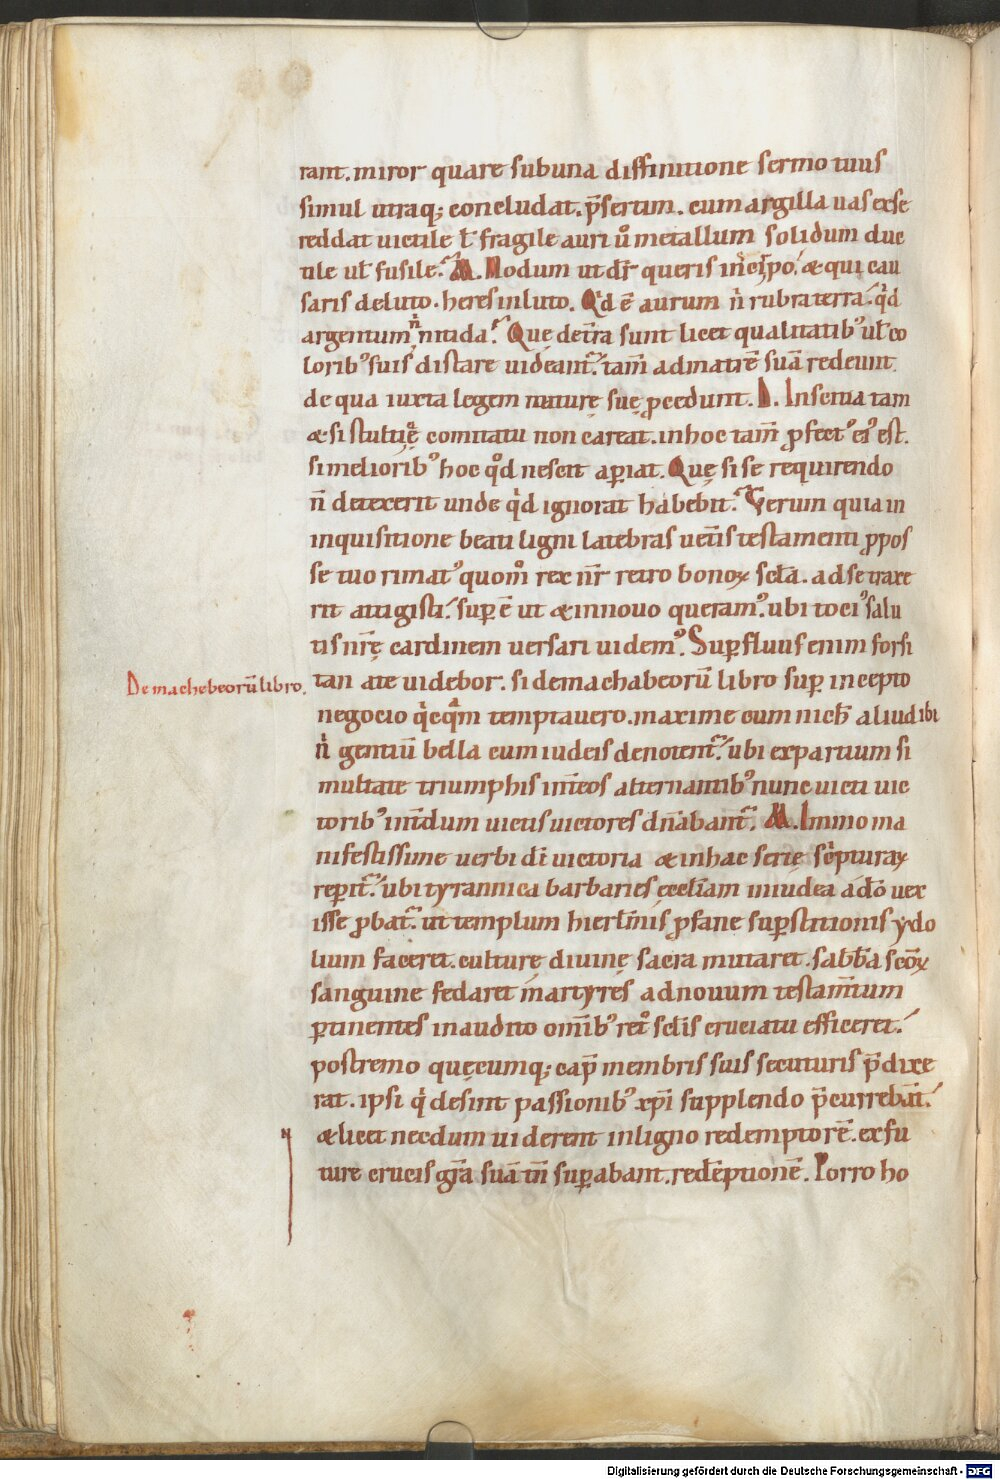 rant. miror quare sub una diffinitione sermo tuus
simul utraq; concludat. p̄sertim. cum argilla uas ex se
reddat uictile ł fragile auri ů metallum solidum duc
tile ul̄ fusile. M. Modum ut dr̄ queris in & qui cau
saris de luto. heres in luto. Qͥd ē aurum nͥ rubra terra. qͥd
argentum nͥ nitida. Quę de tr̄a sunt licet qualitatibꝰ ul̄ co
loribꝰ suis distare uideant᷑. tam̄ ad matrē suā redeunt.
de qua iuxta legem naturę suę ꝓcedunt. D. Inscitia tam
& si stultitię comitatu non careat. in hoc tam̄ ꝓfectꝰ eiꝰ est.
si melioribꝰ hoc qͦd nescit aꝑiat. Quę si se requirendo
n̄ detexerit unde qͥd ignorat habebit. Verum quia in
inquisitione beati ligni latebras uet̄is testamenti ꝓpos
se tuo rimatꝰ quom̊ rex nr̄ retro bonoꝝ scl̄a. ad se traxe
rit attigisti. suꝑ ē ut & in nouo queramꝰ. ubi tociꝰ salu
tis nr̄ę cardinem uersari uidemꝰ. Suꝑfluus enim forsi
De machebeorū libro.
tan a te uidebor. si de machabeorū libro suꝑ incepto
negocio qͥcqͣm temptauero. maxime cum nich̄ aliud ibi
nͥ gentiū bella cum iudeis denotent᷑. ubi ex partium si
multate triumphis int̄ eos alternantibꝰ nunc uicti uic
toribꝰ int̄dum uictis uictores dn̄abant᷑. M. Immo ma
nifestissime uerbi dī uictoria & in hac serię scͥpturaꝝ
reperit᷑. ubi tyrannica barbaries eccl̄iam in iudea adō uex
isse ꝓbat᷑. ut templum hierl̄mis ꝓfane suꝑstitionis ydo
lium faceret. culturę diuinę sacra mutaret. sabb̄a sc̄oꝝ
sanguine fedaret martyres ad nouum testam̄tum
ꝑtinentes inaudito om̄ibꝰ retͦ scl̄is cruciatu efficeret.
postremo quęcumq; cap̄ membris suis secuturis p̄dixe
rat. ipsi qͥ desint passionibꝰ xp̄i supplendo p̄currebāt.
& licet necdum uiderent in ligno redemptorē. ex fu
ture crucis gr̄a suā tn̄ suꝑabant. redēptionē. Porro ho